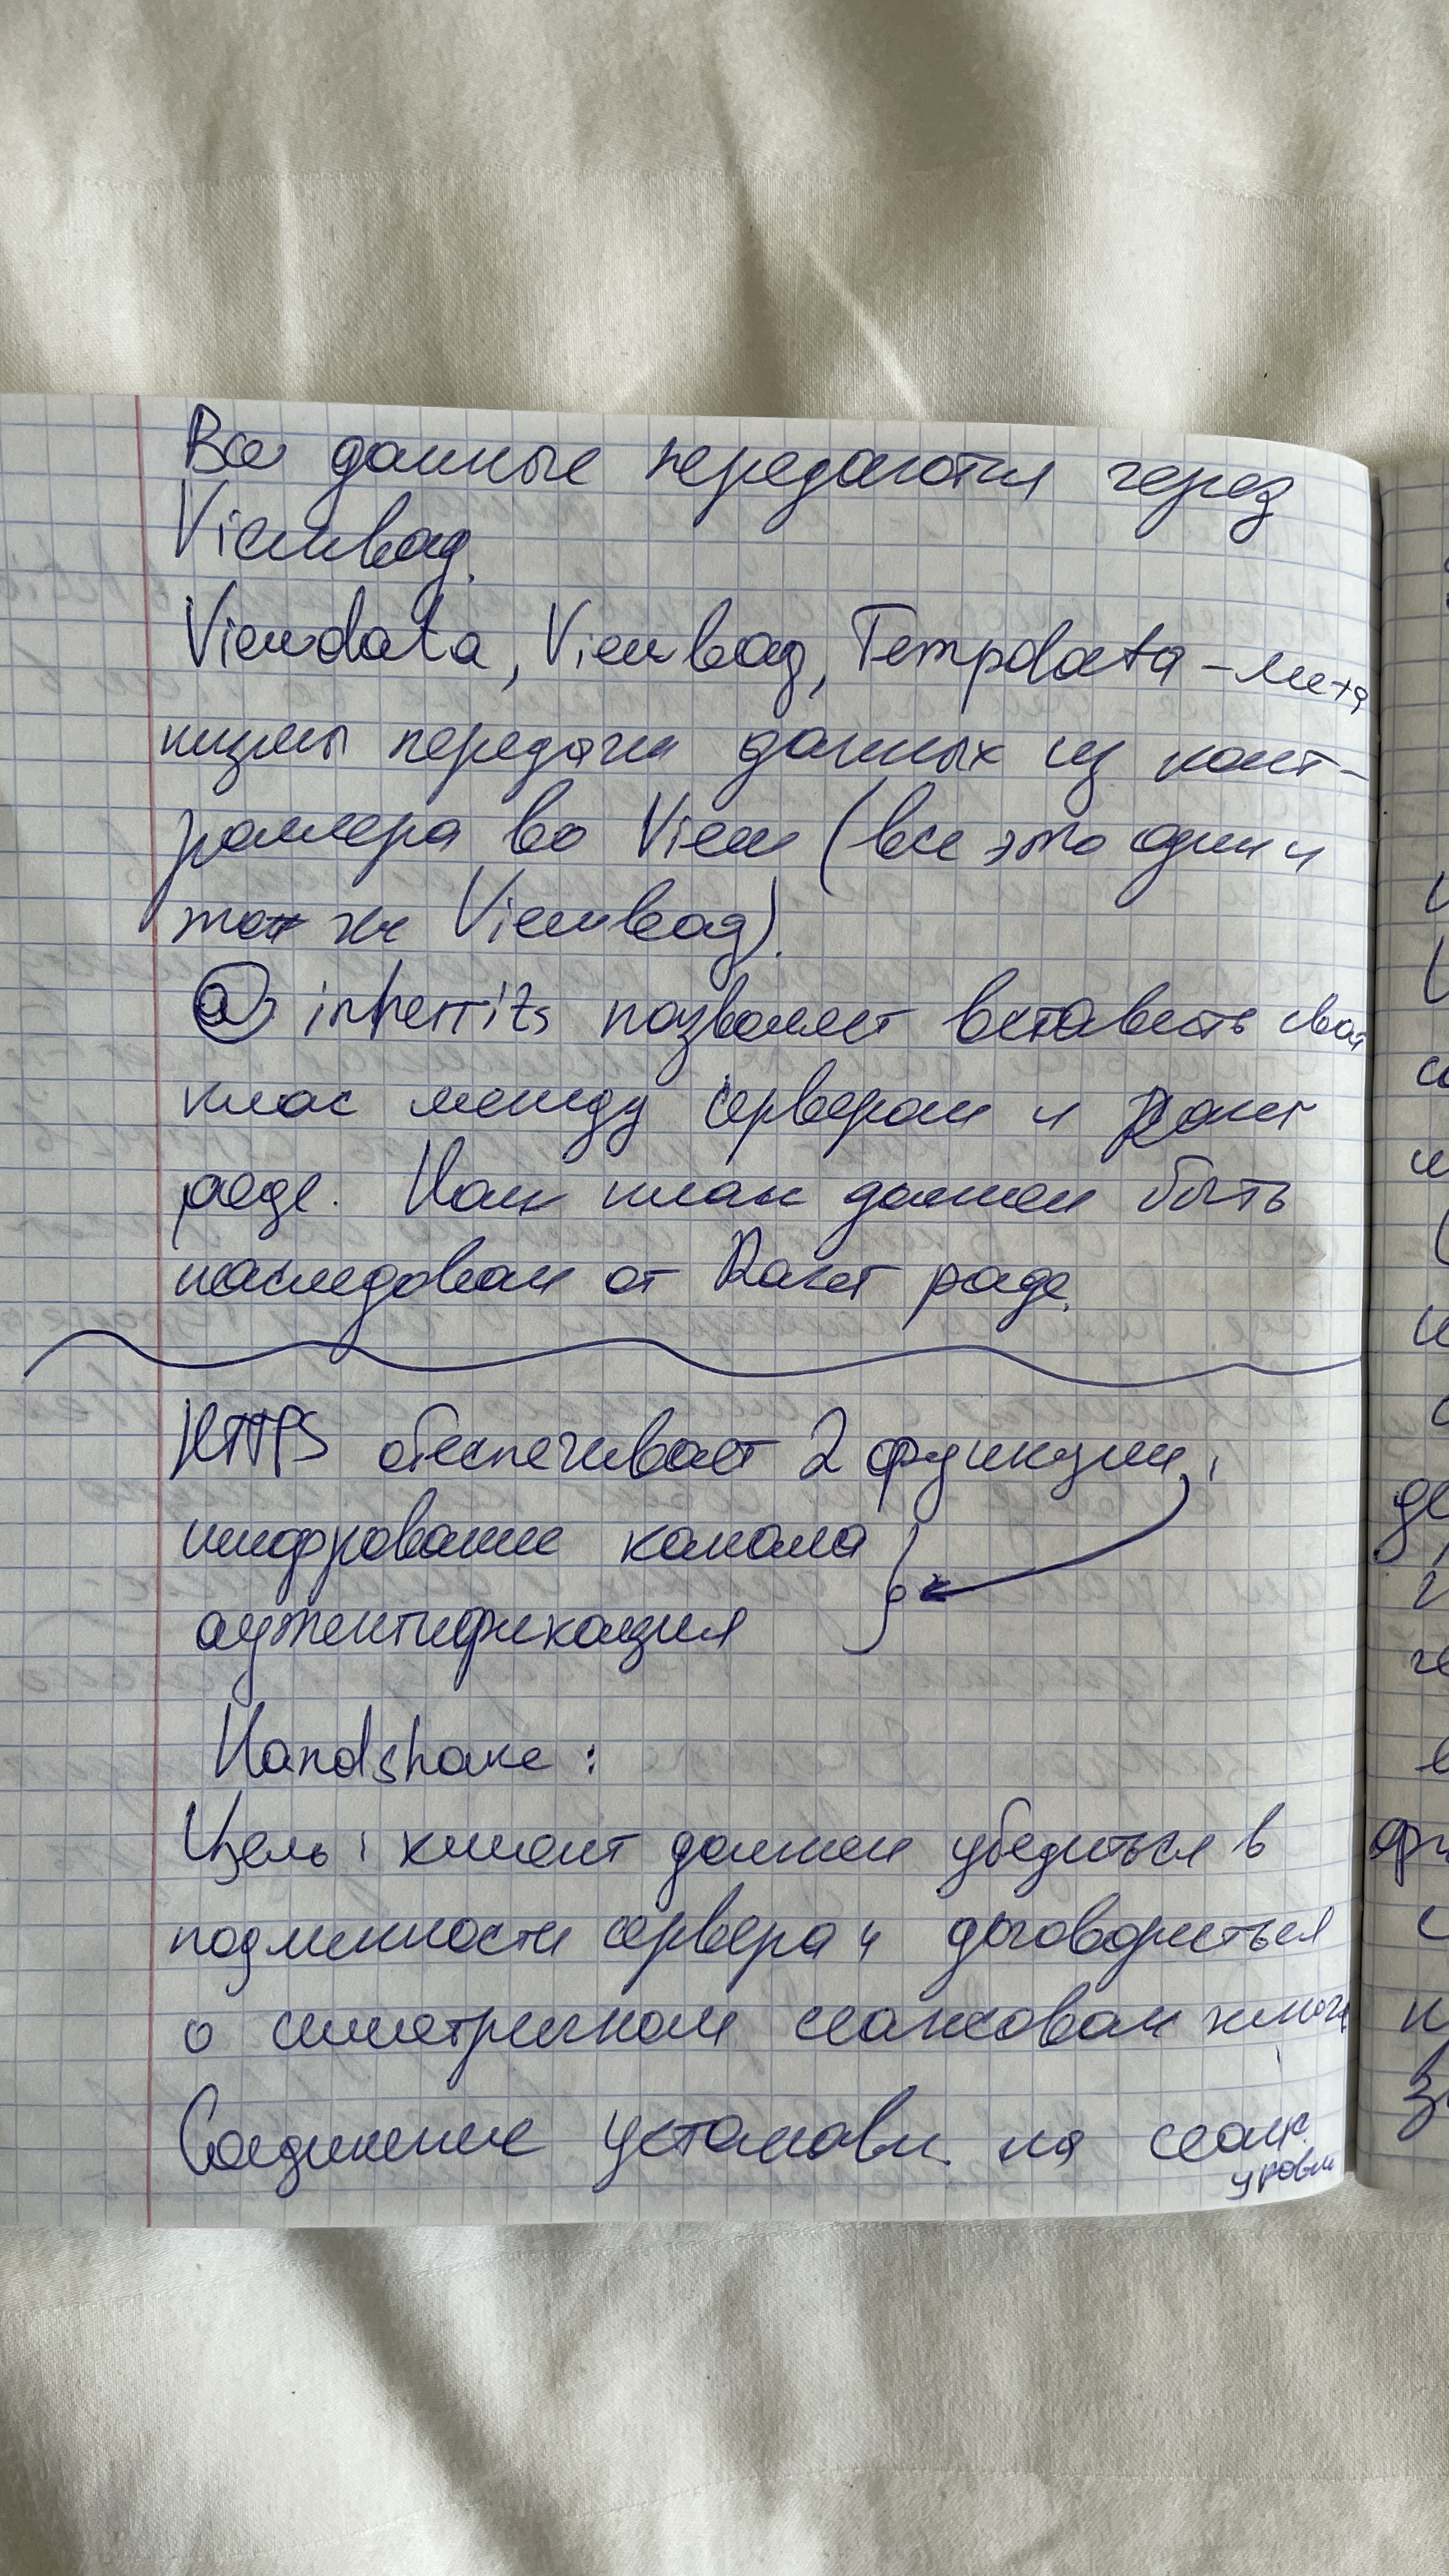 Все данные передаются через
Viewbag.
Viewdata, Viewbag, Tempdata - меха
низмы передачи данных из конт-
роллера во View (все это один и
тот же Viewbag).
@ inherrits позволяет вставить свой
клас между сервером и
page. Наш клас должен быть
наследован от page.
HTTPS обеспечивает 2 функции:
шифрование канала
аутентификация
Handshake:
Цель: клиент должен убедиться в
подлинности сервера и договориться
о симетричном сеансовом ключе
Соединение установл. на сеанс.
уровн